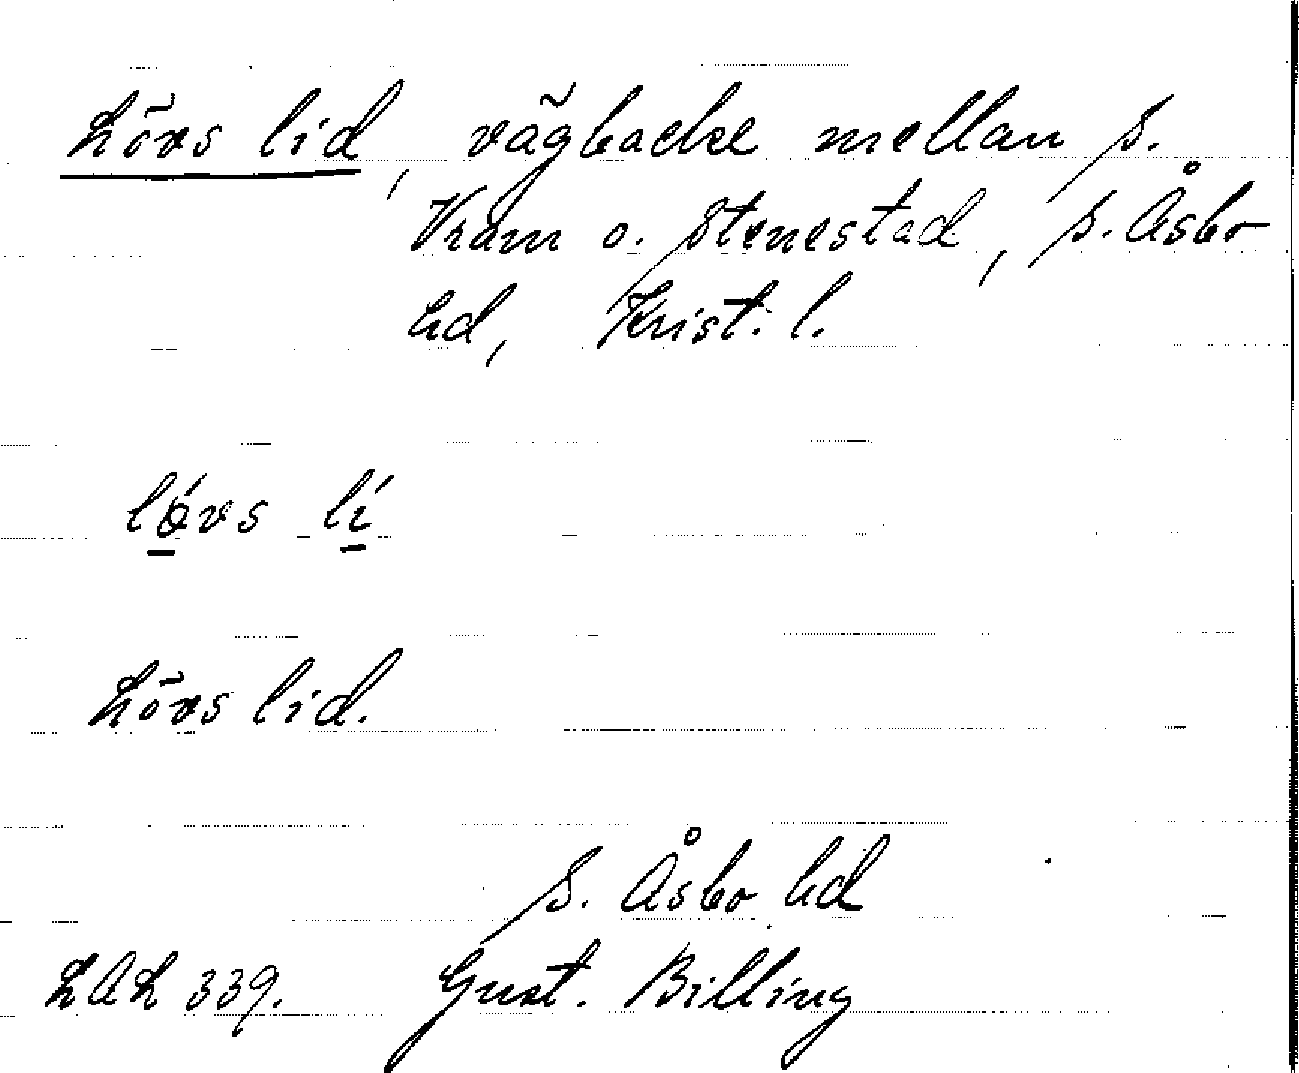 Lövs lid, vägbacke mellan S.
Vram o. Stenestad, S. Åsbo
hd, Krist. l.
lóvs lí
Lövs lid.
S. Åsbo hd
LAL 339. Gust. Billing